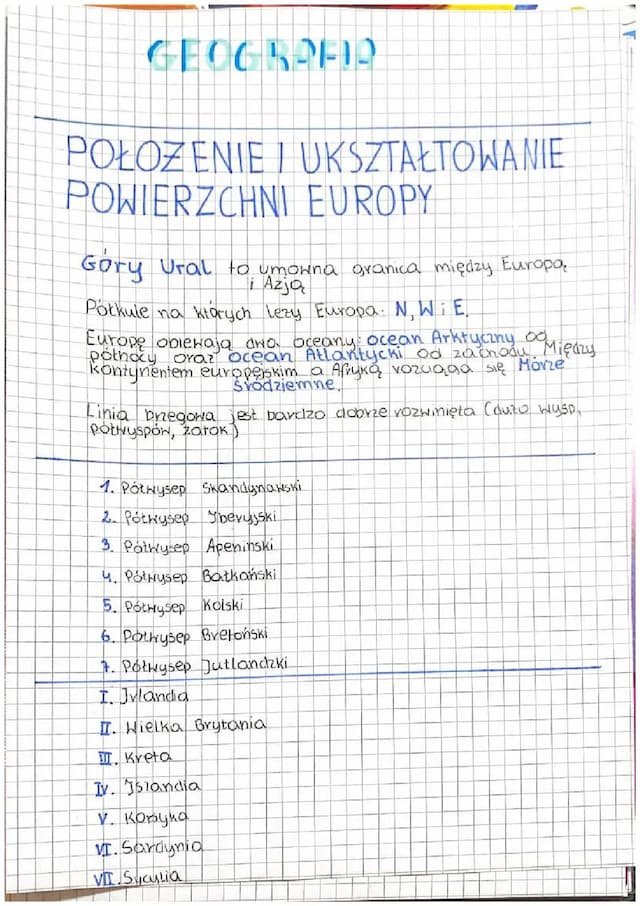 GEOGRAFIA
POŁOŻENIE I UKSZTAŁTOWANIE
POWIERZCHNI EUROPY
Góry Ural to umowna granica między Europą
i Azją
Półkule na których leży Europa: N, W i E.
Europę oblewają dwa oceany: ocean Arktyczny od
północy oraz ocean Atlantycki od zachodu. Między
kontynentem europejskim a Afryką rozciąga się Morze
Śródziemne.
Linia brzegowa jest bardzo dobrze rozwinięta (dużo wysp,
półwyspów, zatok)
1. Półwysep Skandynawski
2. Półwysep Iberyjski
3. Półwysep Apeninski
4. Półwysep Bałkański
5. Półwysep Kolski
6. Półwysep Bretoński
7. Półwysep Jutlandzki
I. Irlandia
II. Wielka Brytania
III. Kreta
IV. Islandia
V. Korsyka
VI. Sardynia
VII. Sycylia